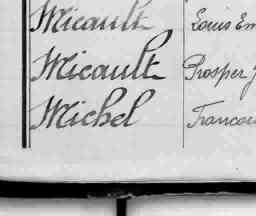 Micault Louis Em
Micault Prosper J
Michel Francois